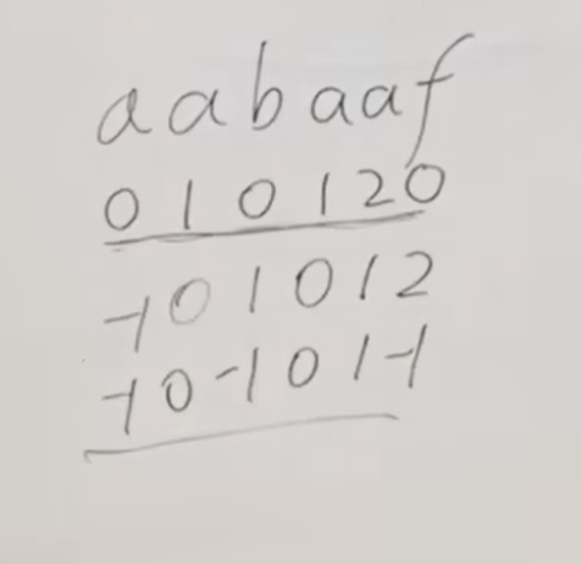 aabaaf
010120
-101012
-10-101-1